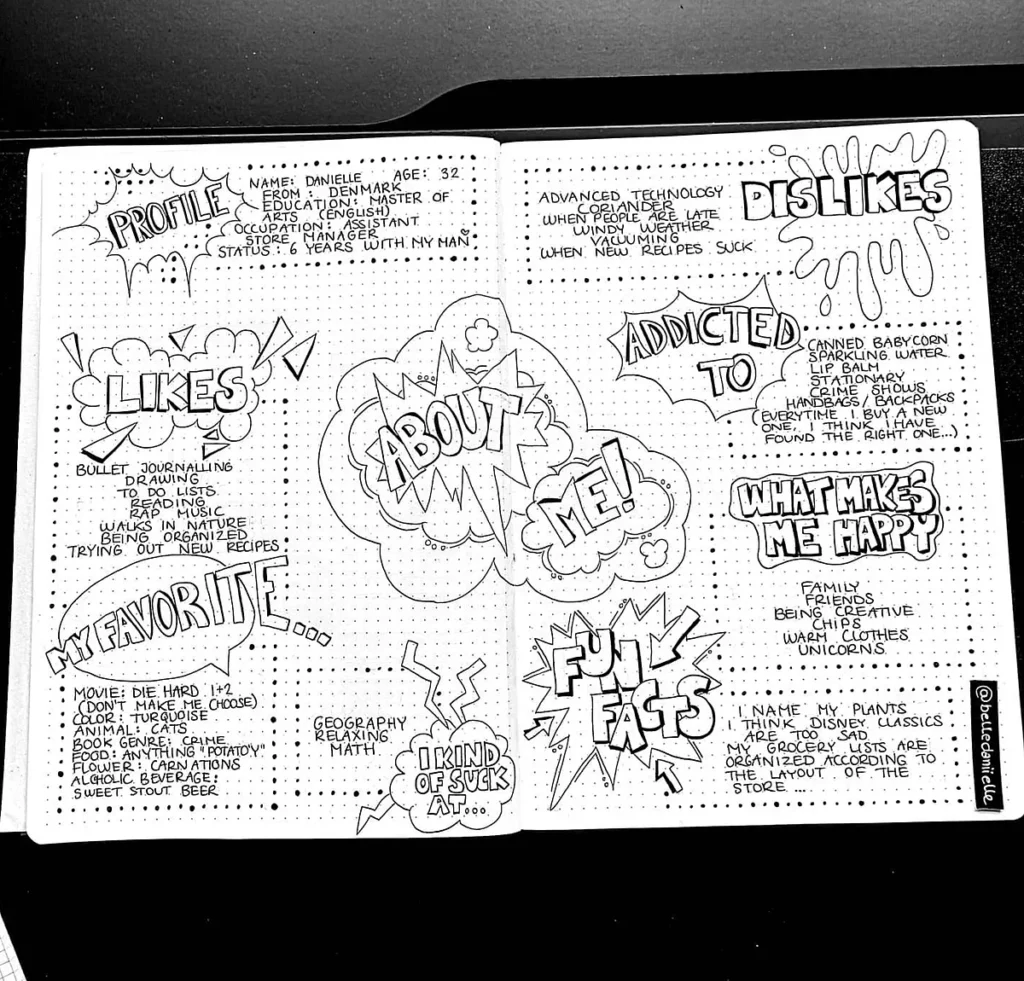 PROFILE
NAME: DANIELLE AGE: 32
FROM: DENMARK
EDUCATION: MASTER OF
ARTS (ENGLISH)
OCCUPATION: ASSISTANT
STORE MANAGER
STATUS: 6 YEARS WITH MY MAN
LIKES
BULLET JOURNALLING
DRAWING
TO DO LISTS
READING
RAP MUSIC
WALKS IN NATURE
BEING ORGANIZED
TRYING OUT NEW RECIPES
MY FAVORITE...
MOVIE: DIE HARD 1+2
(DON'T MAKE ME CHOOSE)
COLOR: TURQUOISE
ANIMAL: CATS
BOOK GENRE: CRIME
FOOD: ANYTHING "POTATO'Y"
FLOWER: CARNATIONS
ALCHOLIC BEVERAGE:
SWEET STOUT BEER
ABOUT
ME!
GEOGRAPHY
RELAXING
MATH
I KIND
OF SUCK
AT...
ADVANCED TECHNOLOGY
CORIANDER
WHEN PEOPLE ARE LATE
WINDY WEATHER
VACUUMING
WHEN NEW RECIPES SUCK
DISLIKES
ADDICTED
TO
CANNED BABYCORN
SPARKLING WATER
LIP BALM
STATIONARY
CRIME SHOWS
HANDBAGS/BACKPACKS
(EVERYTIME I BUY A NEW
ONE, I THINK I HAVE
FOUND THE RIGHT ONE...)
WHAT MAKES
ME HAPPY
FAMILY
FRIENDS
BEING CREATIVE
CHIPS
WARM CLOTHES
UNICORNS
FUN
FACTS
I NAME MY PLANTS
I THINK DISNEY CLASSICS
ARE TOO SAD
MY GROCERY LISTS ARE
ORGANIZED ACCORDING TO
THE LAYOUT OF THE
STORE...
@belledaniielle